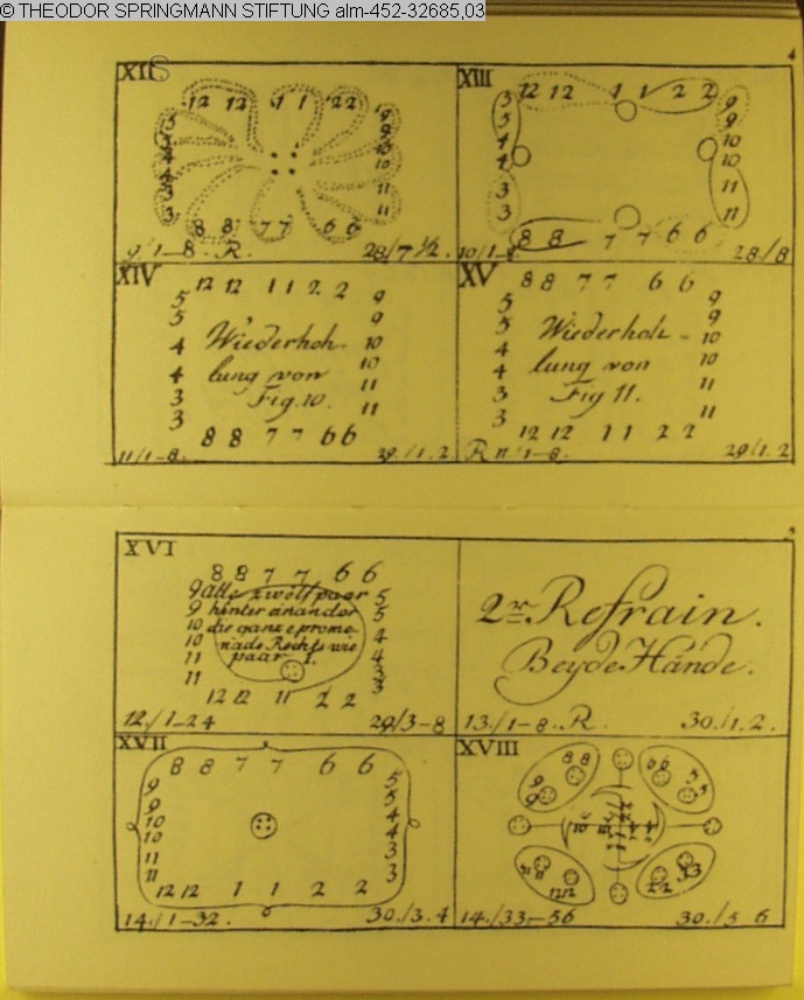 © THEODOR SPRINGMANN STIFTUNG alm-452-32685,03
4
XII
12 12 1 1 2 2
5 9
5 9
4 10
4 10
3 11
3 11
8 8 7 7 6 6
9/1-8. R. 28/7 ½.
XIII
12 12 1 1 2 2
5 9
5 9
4 10
4 10
3 11
3 11
8 8 7 7 6 6
10/1-8. 28/8
XIV
12 12 1 1 2 2
5 9
5 9
4 Wiederhoh- 10
4 lung von 10
3 Fig. 10. 11
3 11
8 8 7 7 6 6
11/1-8. 29./1.2
XV
8 8 7 7 6 6
5 9
5 Wiederhoh- 9
4 10
4 lung von 10
3 Fig 11. 11
3 11
12 12 1 1 2 2
R 11/1-8. 29/1.2
5
XVI
8 8 7 7 6 6
9 alle zwölf paar 5
9 hinter einander 5
10 die ganze prome- 4
10 nade Rechts wie 4
11 paar 1. 3
11 3
12 12 11 2 2
12./1-24 29/3-8
2te Refrain.
Beyde Hände.
13./1-8. R. 30./1.2.
XVII
8 8 7 7 6 6
9 5
9 5
10 4
10 4
11 3
11 3
12 12 1 1 2 2
14./1-32. 30./3.4
XVIII
8 8 6 6
9 5
9 5
11 11 3 3
12 12 2 2
14./33-56 30./5 6